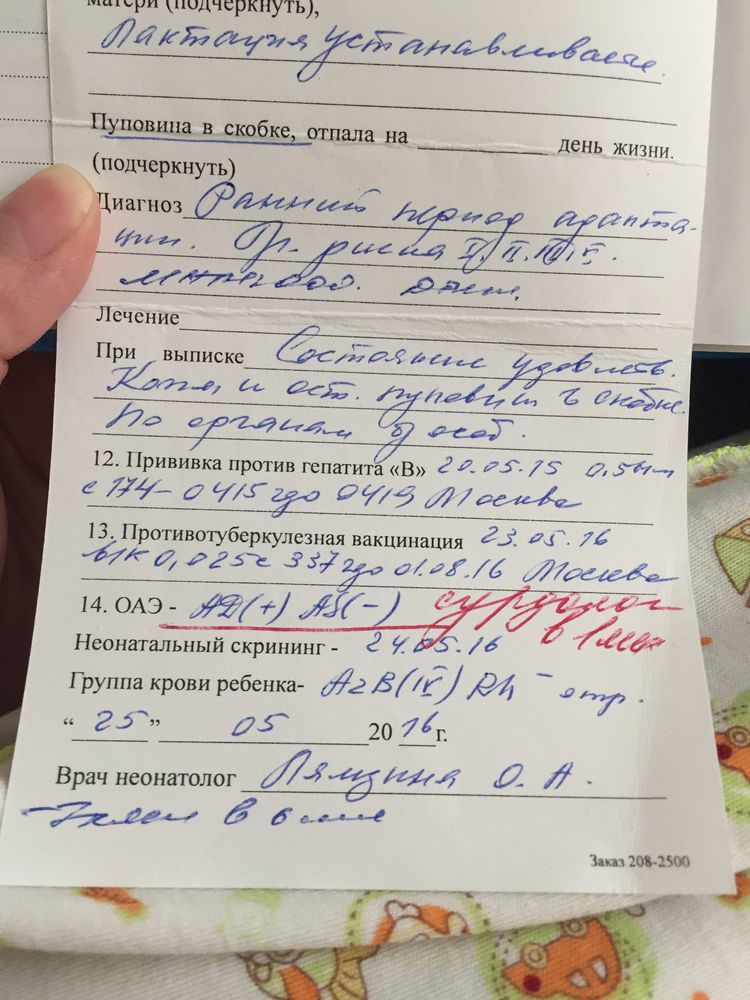 матери (подчеркнуть),
Лактация устанавливается.
Пуповина в скобке, отпала на день жизни.
(подчеркнуть)
Диагноз Ранний период адапта-
ции. Гр. риска
Лечение
При выписке Состояние удовлетв.
Кожа и ост. пуповин в скобке.
По органам б/особ.
12. Прививка против гепатита «В» 20.05.15 0,5 мл
с 174-0415 до 0419 Москва
13. Противотуберкулезная вакцинация 23.05.16
в/к 0,025 с 337 до 01.08.16 Москва
14. ОАЭ - AD(+) AS(-) сурдолог
в 1 мес
Неонатальный скрининг - 24.05.16
Группа крови ребенка- А2В(IV) Rh - отр.
“ 25 ” 05 20 16 г.
Врач неонатолог О. А.
в
Заказ 208-2500